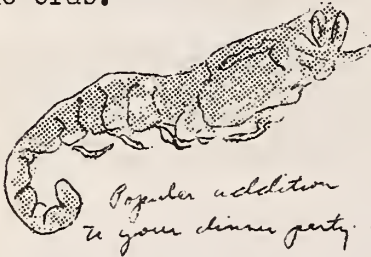 crab.
Popular addition
to your dinner party.